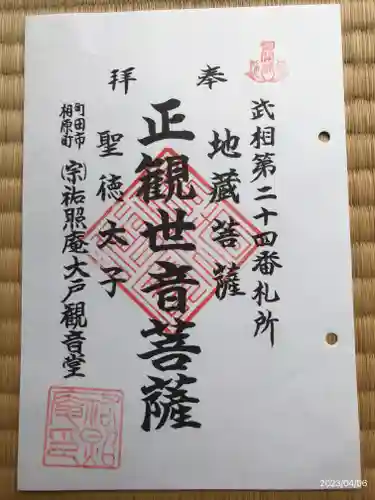 奉拝
武相第二十四番札所
地蔵菩薩
正観世音菩薩
聖徳太子
町田市
相原町
㈪宗祐照庵大戸観音堂
2023/04/06